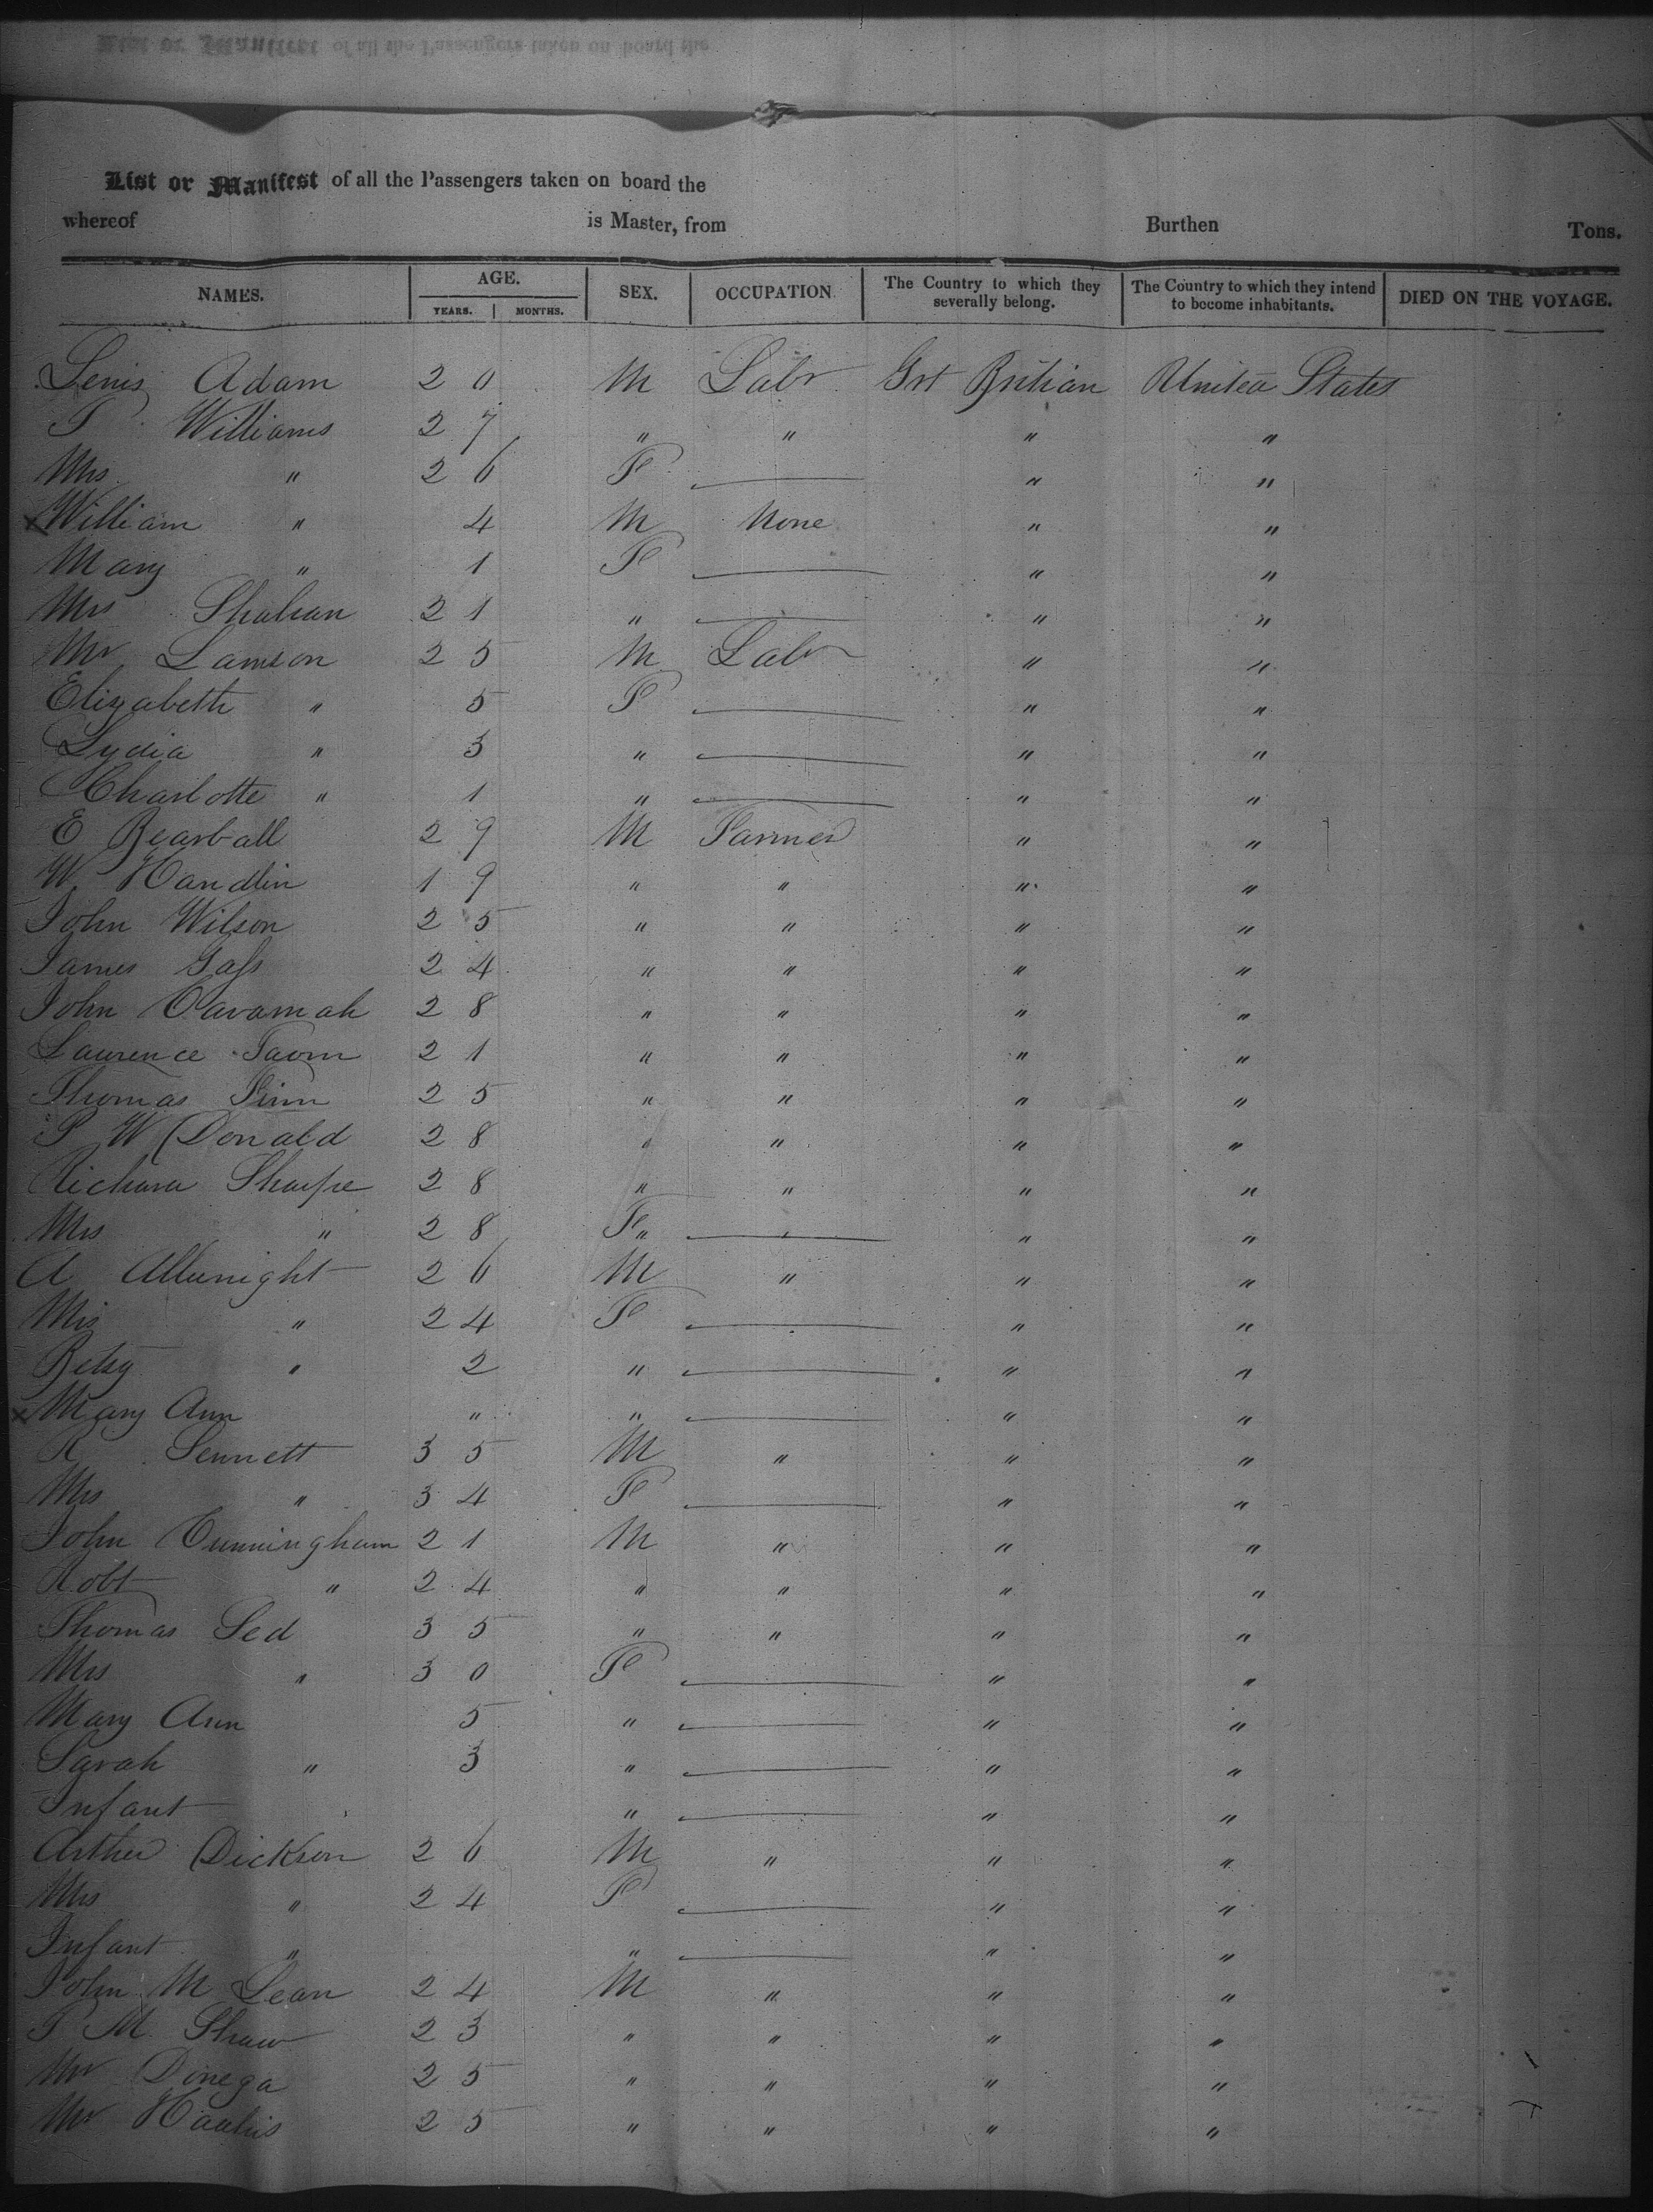 List or Manifest of all the Passengers taken on board the
whereof is Master, from Burthen Tons.
NAMES. AGE. YEARS. MONTHS. SEX. OCCUPATION. The Country to which they severally belong. The Country to which they intend to become inhabitants. DIED ON THE VOYAGE.
Adam 20 M Labr Grt Britian United States
Williams 27 " " " "
Mrs " 26 F " "
William " 4 M None " "
Mary " 1 F " "
Mrs 21 " " "
Mr Lamson 25 M Labr " "
Elizabeth " 5 F " "
Lydia " 3 " " "
Charlotte " 1 " " "
E 29 M Farmer " "
W Handlin 19 " " " "
John Wilson 25 " " " "
James Gass 24 " " " "
John Cavarnah 28 " " " "
Laurence 21 " " " "
Thomas Finn 25 " " " "
Donald 28 " " " "
Richard Sharpe 28 " " " "
Mrs " 28 F " " "
A 26 M " " "
Mrs " 24 F " "
Betsy " 2 " " "
Mary Ann " " " "
R Sennett 35 M " " "
Mrs " 34 F " "
John Cunningham 21 M " " "
Robt " 24 " " " "
Thomas 35 " " " "
Mrs " 30 F " "
Mary Ann 5 " " "
Sarah " 3 " " "
Infant " " "
Arther Dickson 26 M " " "
Mrs " 24 F " "
Infant " " " "
John M Lean 24 M " " "
M Shaw 23 " " " "
Mr Donega 25 " " " "
Mr 25 " " " "